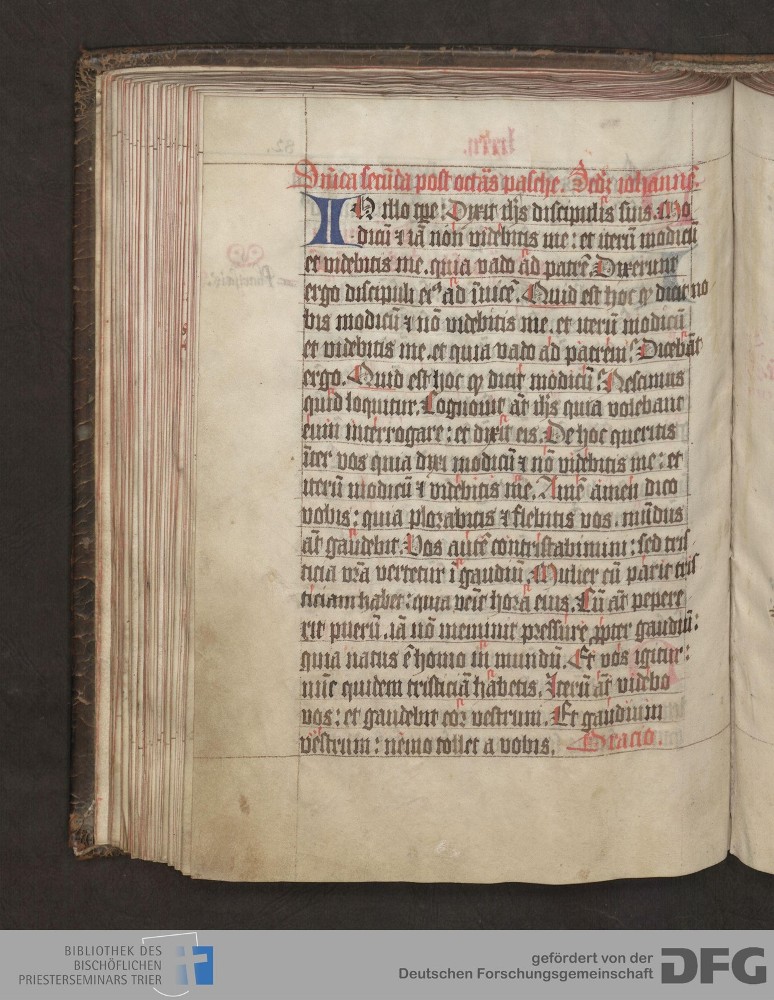 Dn̄ica secūda post octās pasche. Scd̄z iohanne.
IN illo tp̄e: Dixit ih̄s discipulis suis. Mo
dicū ⁊ iā non videbitis me: et iterū modicū
et videbitis me. quia vado ad patrē. Dixerunt
ergo discipuli eiꝰ ad īuicē. Quid est hoc qd̄ dicit no
bis modicū ⁊ nō videbitis me. et iterū modicū
et videbitis me. et quia vado ad patrem? Dicebāt
ergo. Quid est hoc qd̄ dicit modicū? Nescimus
quid loquitur. Cognouit aūt ih̄s quia volebant
eum interrogare: et dixit eis. De hoc queritis
īter vos quia dixi modicū ⁊ nō videbitis me: et
iterū modicū ⁊ videbitis me. Amē amen dico
vobis: quia plorabitis ⁊ flebitis vos. mūdus
aūt gaudebit. Vos autē contristabimini: sed tris
ticia vrā vertetur ī gaudiū. Mulier cū parit tris
ticiam habet: quia venit hora eius. Cū aūt pepere
rit puerū. iā nō meminit pressure ꝓpter gaudiū:
quia natus ē homo in mundū. Et vos igitur:
nūc quidem tristiciā habetis. Iterū aūt videbo
vos: et gaudebit cor vestrum. Et gaudium
vestrum: nemo tollet a vobis. Oracio.
BIBLIOTHEK DES
BISCHÖFLICHEN
PRIESTERSEMINARS TRIER
gefördert von der
Deutschen Forschungsgemeinschaft DFG